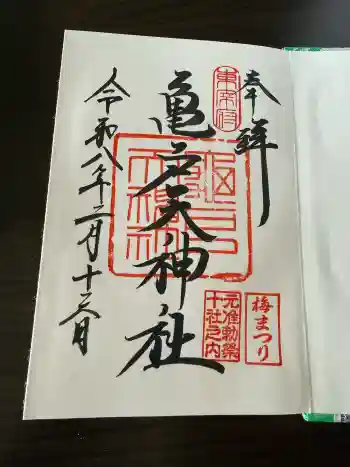 奉拝
東宰府
亀戸天神社
元准勅祭
十社之内
梅まつり
令和八年二月十六日